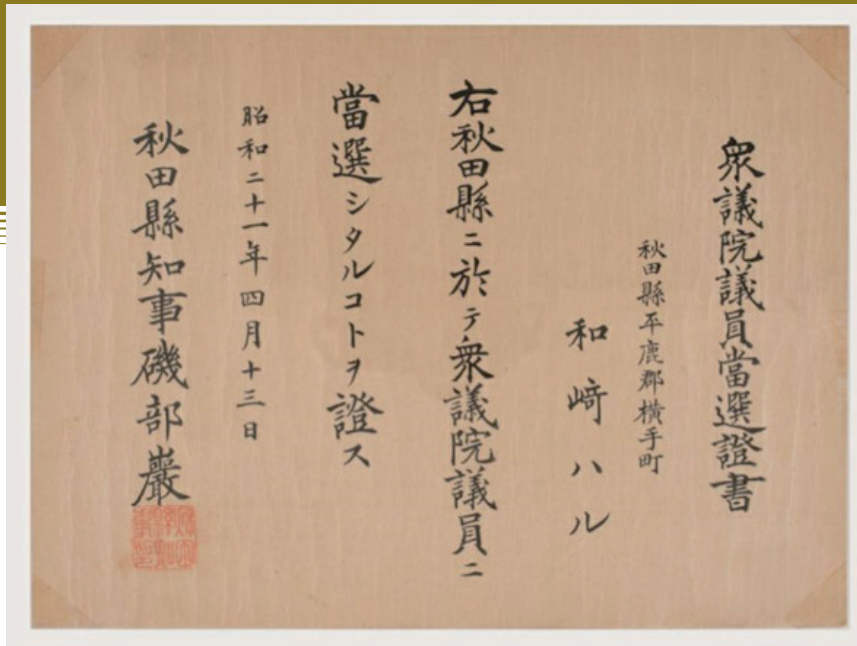 衆議院議員當選證書
秋田縣平鹿郡橫手町
和﨑ハル
右秋田縣ニ於テ衆議院議員ニ
當選シタルコトヲ證ス
昭和二十一年四月十三日
秋田縣知事磯部巖